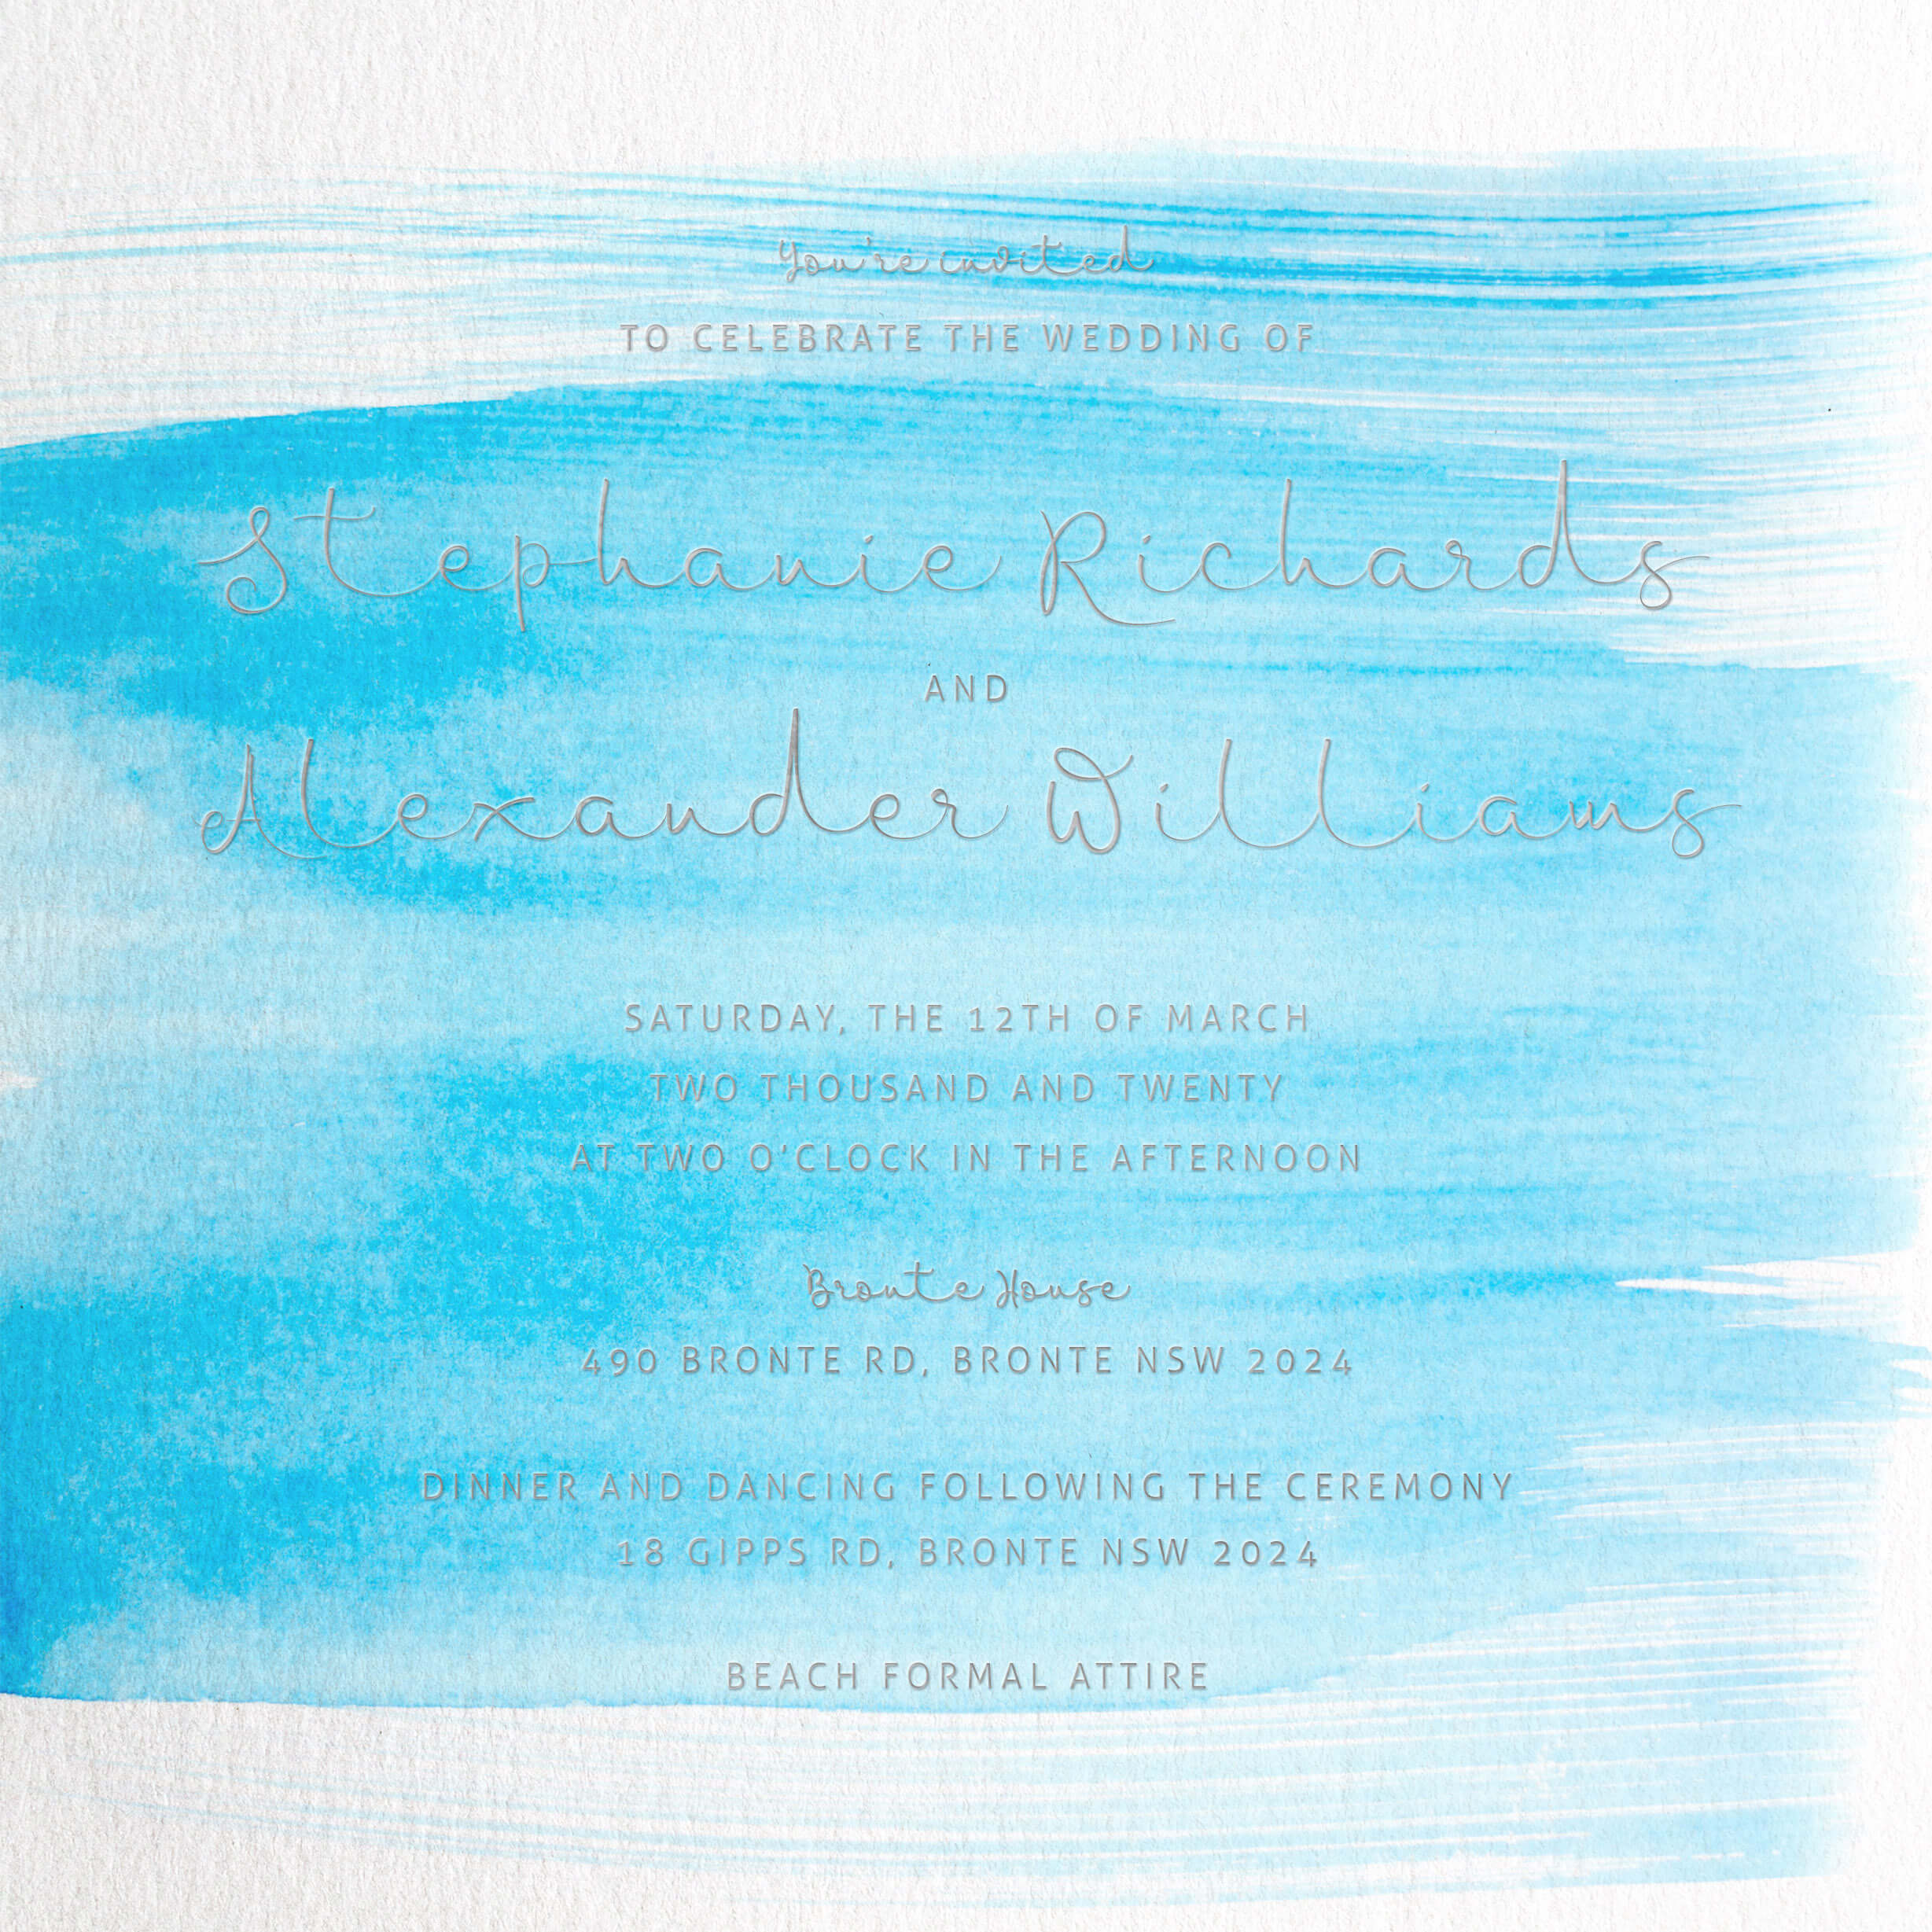 You're invited
TO CELEBRATE THE WEDDING OF
Stephanie Richards
AND
Alexander Williams
SATURDAY, THE 12TH OF MARCH
TWO THOUSAND AND TWENTY
AT TWO O'CLOCK IN THE AFTERNOON
Bronte House
490 BRONTE RD, BRONTE NSW 2024
DINNER AND DANCING FOLLOWING THE CEREMONY
18 GIPPS RD, BRONTE NSW 2024
BEACH FORMAL ATTIRE